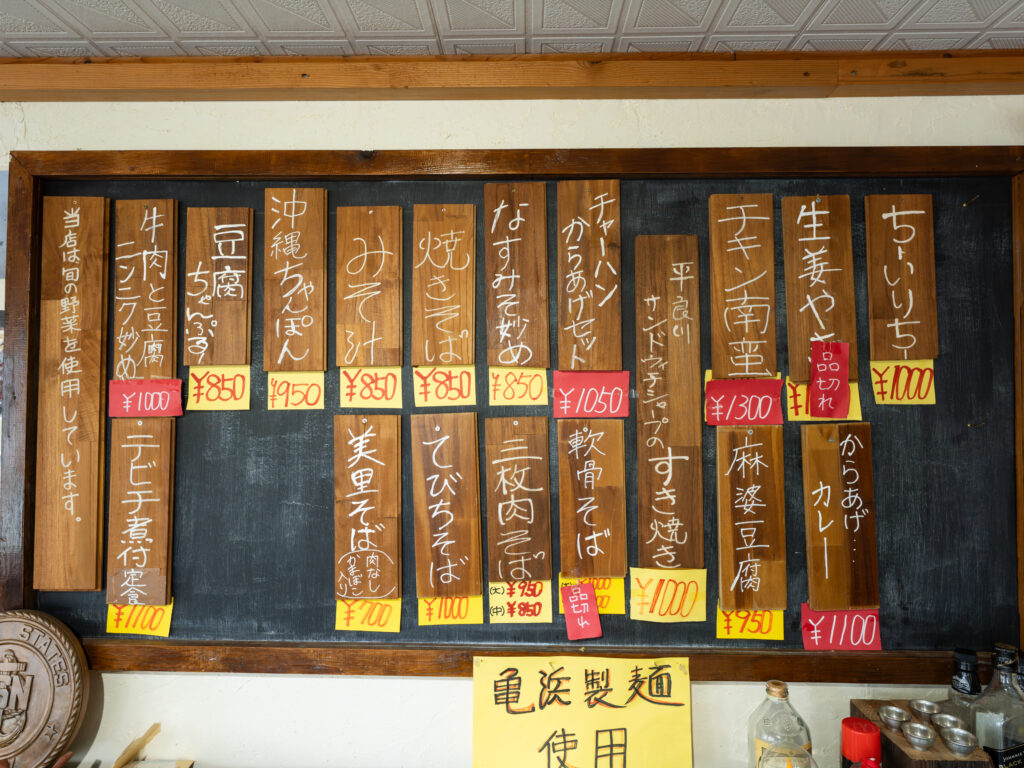 ちいりちー
¥1000
生姜やき
品切れ
チキン南蛮
¥1300
平良川
サンドウィチシャープのすき焼き
¥1000
チャーハン
からあげセット
¥1050
なすみそ妙め
¥850
焼きそば
¥850
みそ汁
¥850
沖縄ちゃんぽん
¥950
豆腐
ちゃんぷるー
¥850
牛肉と豆腐
ニンニク妙め
¥1000
当店は旬の野菜を使用しています。
からあげ…
カレー
¥1100
麻婆豆腐
¥950
軟骨そば
品切れ
三枚肉そば
(大)¥950
(中)¥850
てびちそば
¥1000
美里そば
肉なし
かまぼこ
入り
¥700
テビチ煮付定食
¥1100
亀浜製麺
使用
STATES